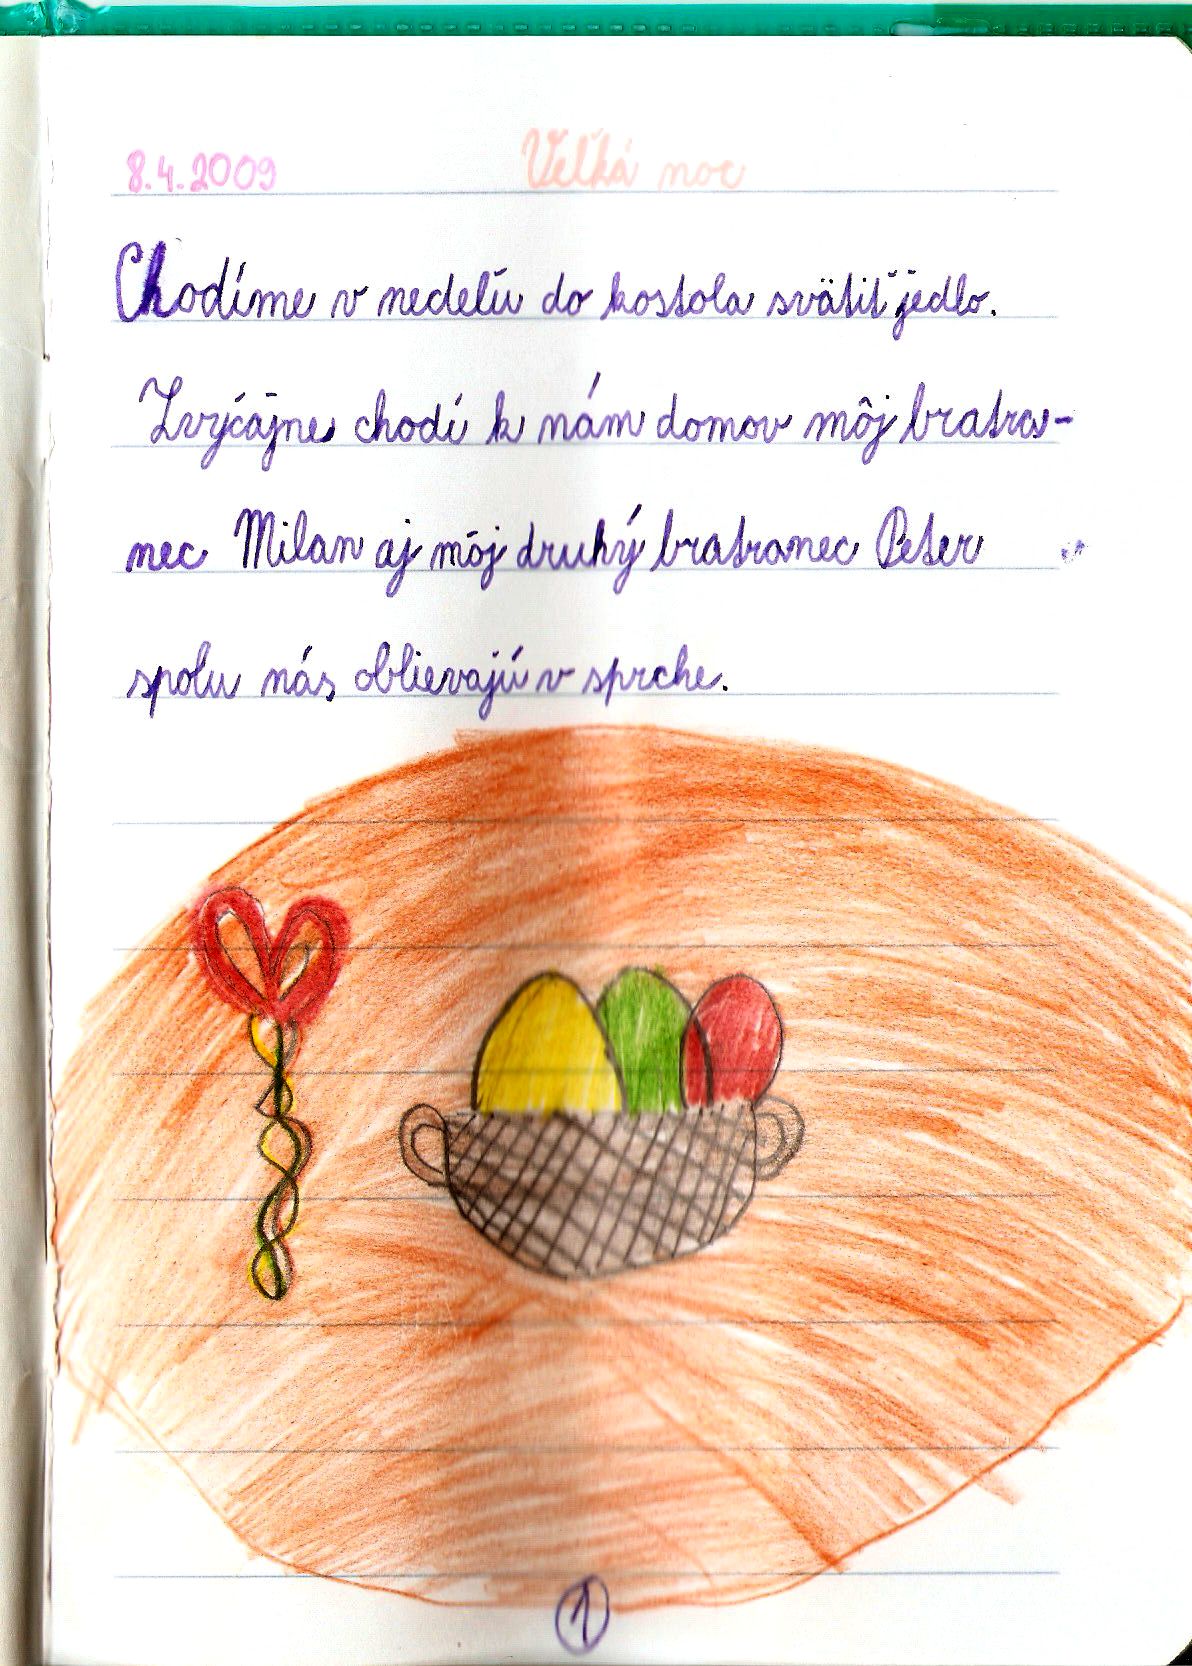 8.4.2009 Veľká noc
Chodíme v nedeľu do kostola svätiť jedlo.
Zvyčajne chodí k nám domov môj bratra-
nec Milan aj môj druhý bratranec Peter
spolu nás oblievajú v sprche.
1